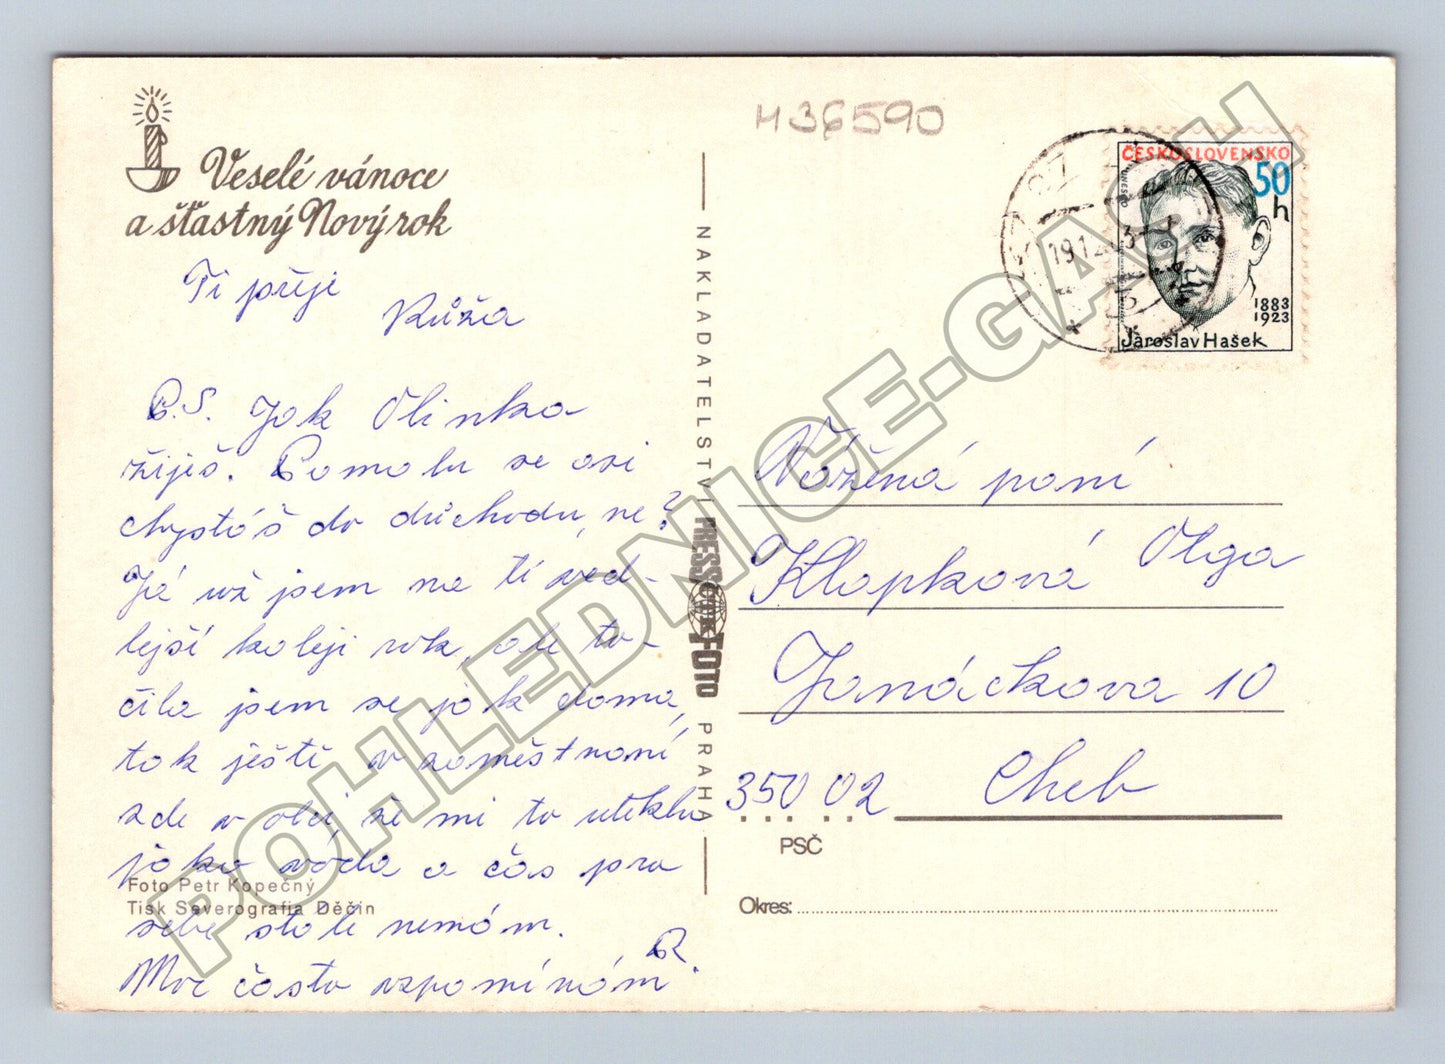 Veselé vánoce
a šťastný Nový rok
Ti přeje
Růža
P.S. Jak Olinko
žiješ. Pomalu se asi
chystáš do důchodu, ne?
Já už jsem na tí ved-
lejší koleji rok, ale to-
čila jsem se jak doma,
tak ještě v zaměstnaní
zde v obci, že mi to uteklo
jako vóda a čas pro
sebe stále nemám.
Moc často vzpomínám.
R
Foto Petr Kopečný
Tisk Severografia Děčín
NAKLADATELSTVÍ PRESSFOTO PRAHA
ČTK
H36590
ČESKOSLOVENSKO
50
h
UNESCO
1883
1923
Jaroslav Hašek
Vážená paní
Klapková Olga
Janáčkova 10
350 02 Cheb
PSČ
Okres:
POHLEDNICE-GASH